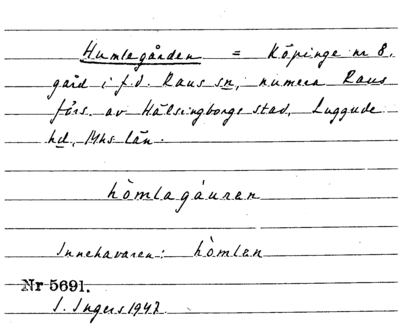 Humlegården = Köpinge nr 8.
gård i f.d. Raus sn, numera Raus
förs. av Hälsingborgs stad, Luggude
hd, Mhs län.
hòmlagáuren
Innehavaren: hòmlen
Nr 5691.
I. Ingers 1947